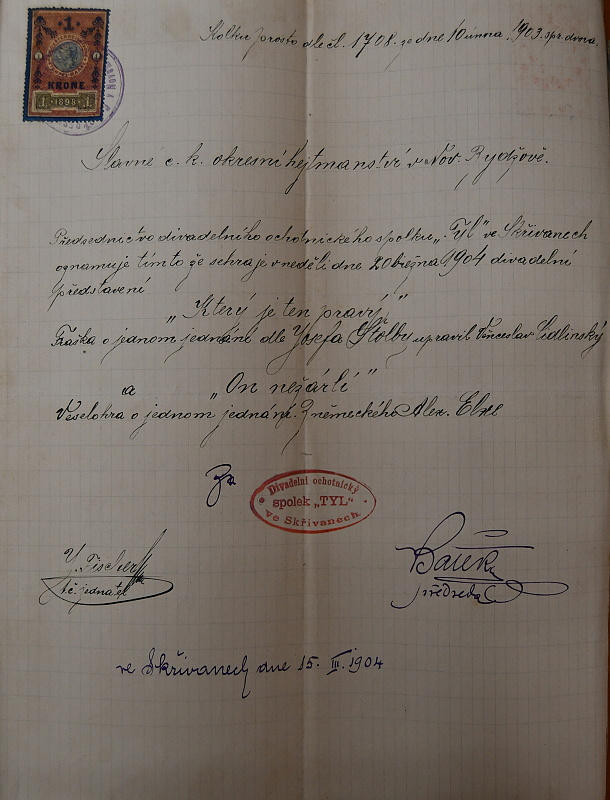 1
KRONE
1 1898 1
Kolku prosto dle čl. 1708. ze dne 10 února 1903. spr. dvora.
Slavné c. k. okresní hejtmanství v Nov. Bydžově.
Předsednictvo divadelního ochotnického spolku „Tyl" ve Skřivanech
oznamuje tímto že sehraje v neděli dne 20 března 1904 divadelní
představení
„Který je ten pravý"
Fraška o jenom jednání dle Josefa Štolby upravil Věnceslav Lidlinský
a „On nežárlí"
Veselohra o jednom jednání. Z německého Alex. Elze
Za
Divadelní ochotnický
spolek „TYL"
ve Skřivanech.
Fischer
t.č. jednatel
předseda
ve Skřivanech dne 15. III. 1904